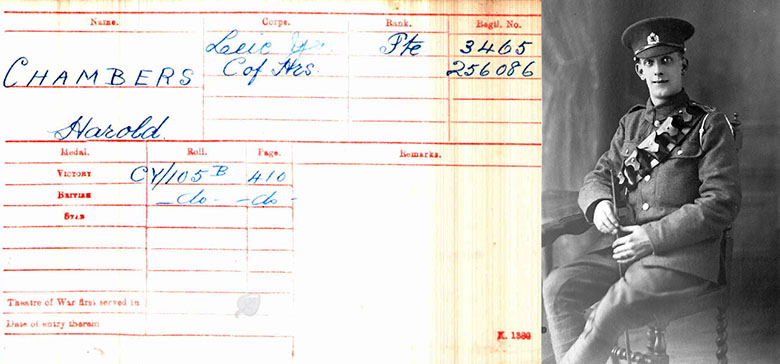 Name. Corps. Rank. Regtl. No.
Leic Pte 3465
CHAMBERS C of Hrs. 256086
Harold.
Medal. Roll. Page. Remarks.
VICTORY CY/105 B 410
BRITISH —do- -do-
STAR
Theatre of War first served in
Date of entry therein
K. 1380